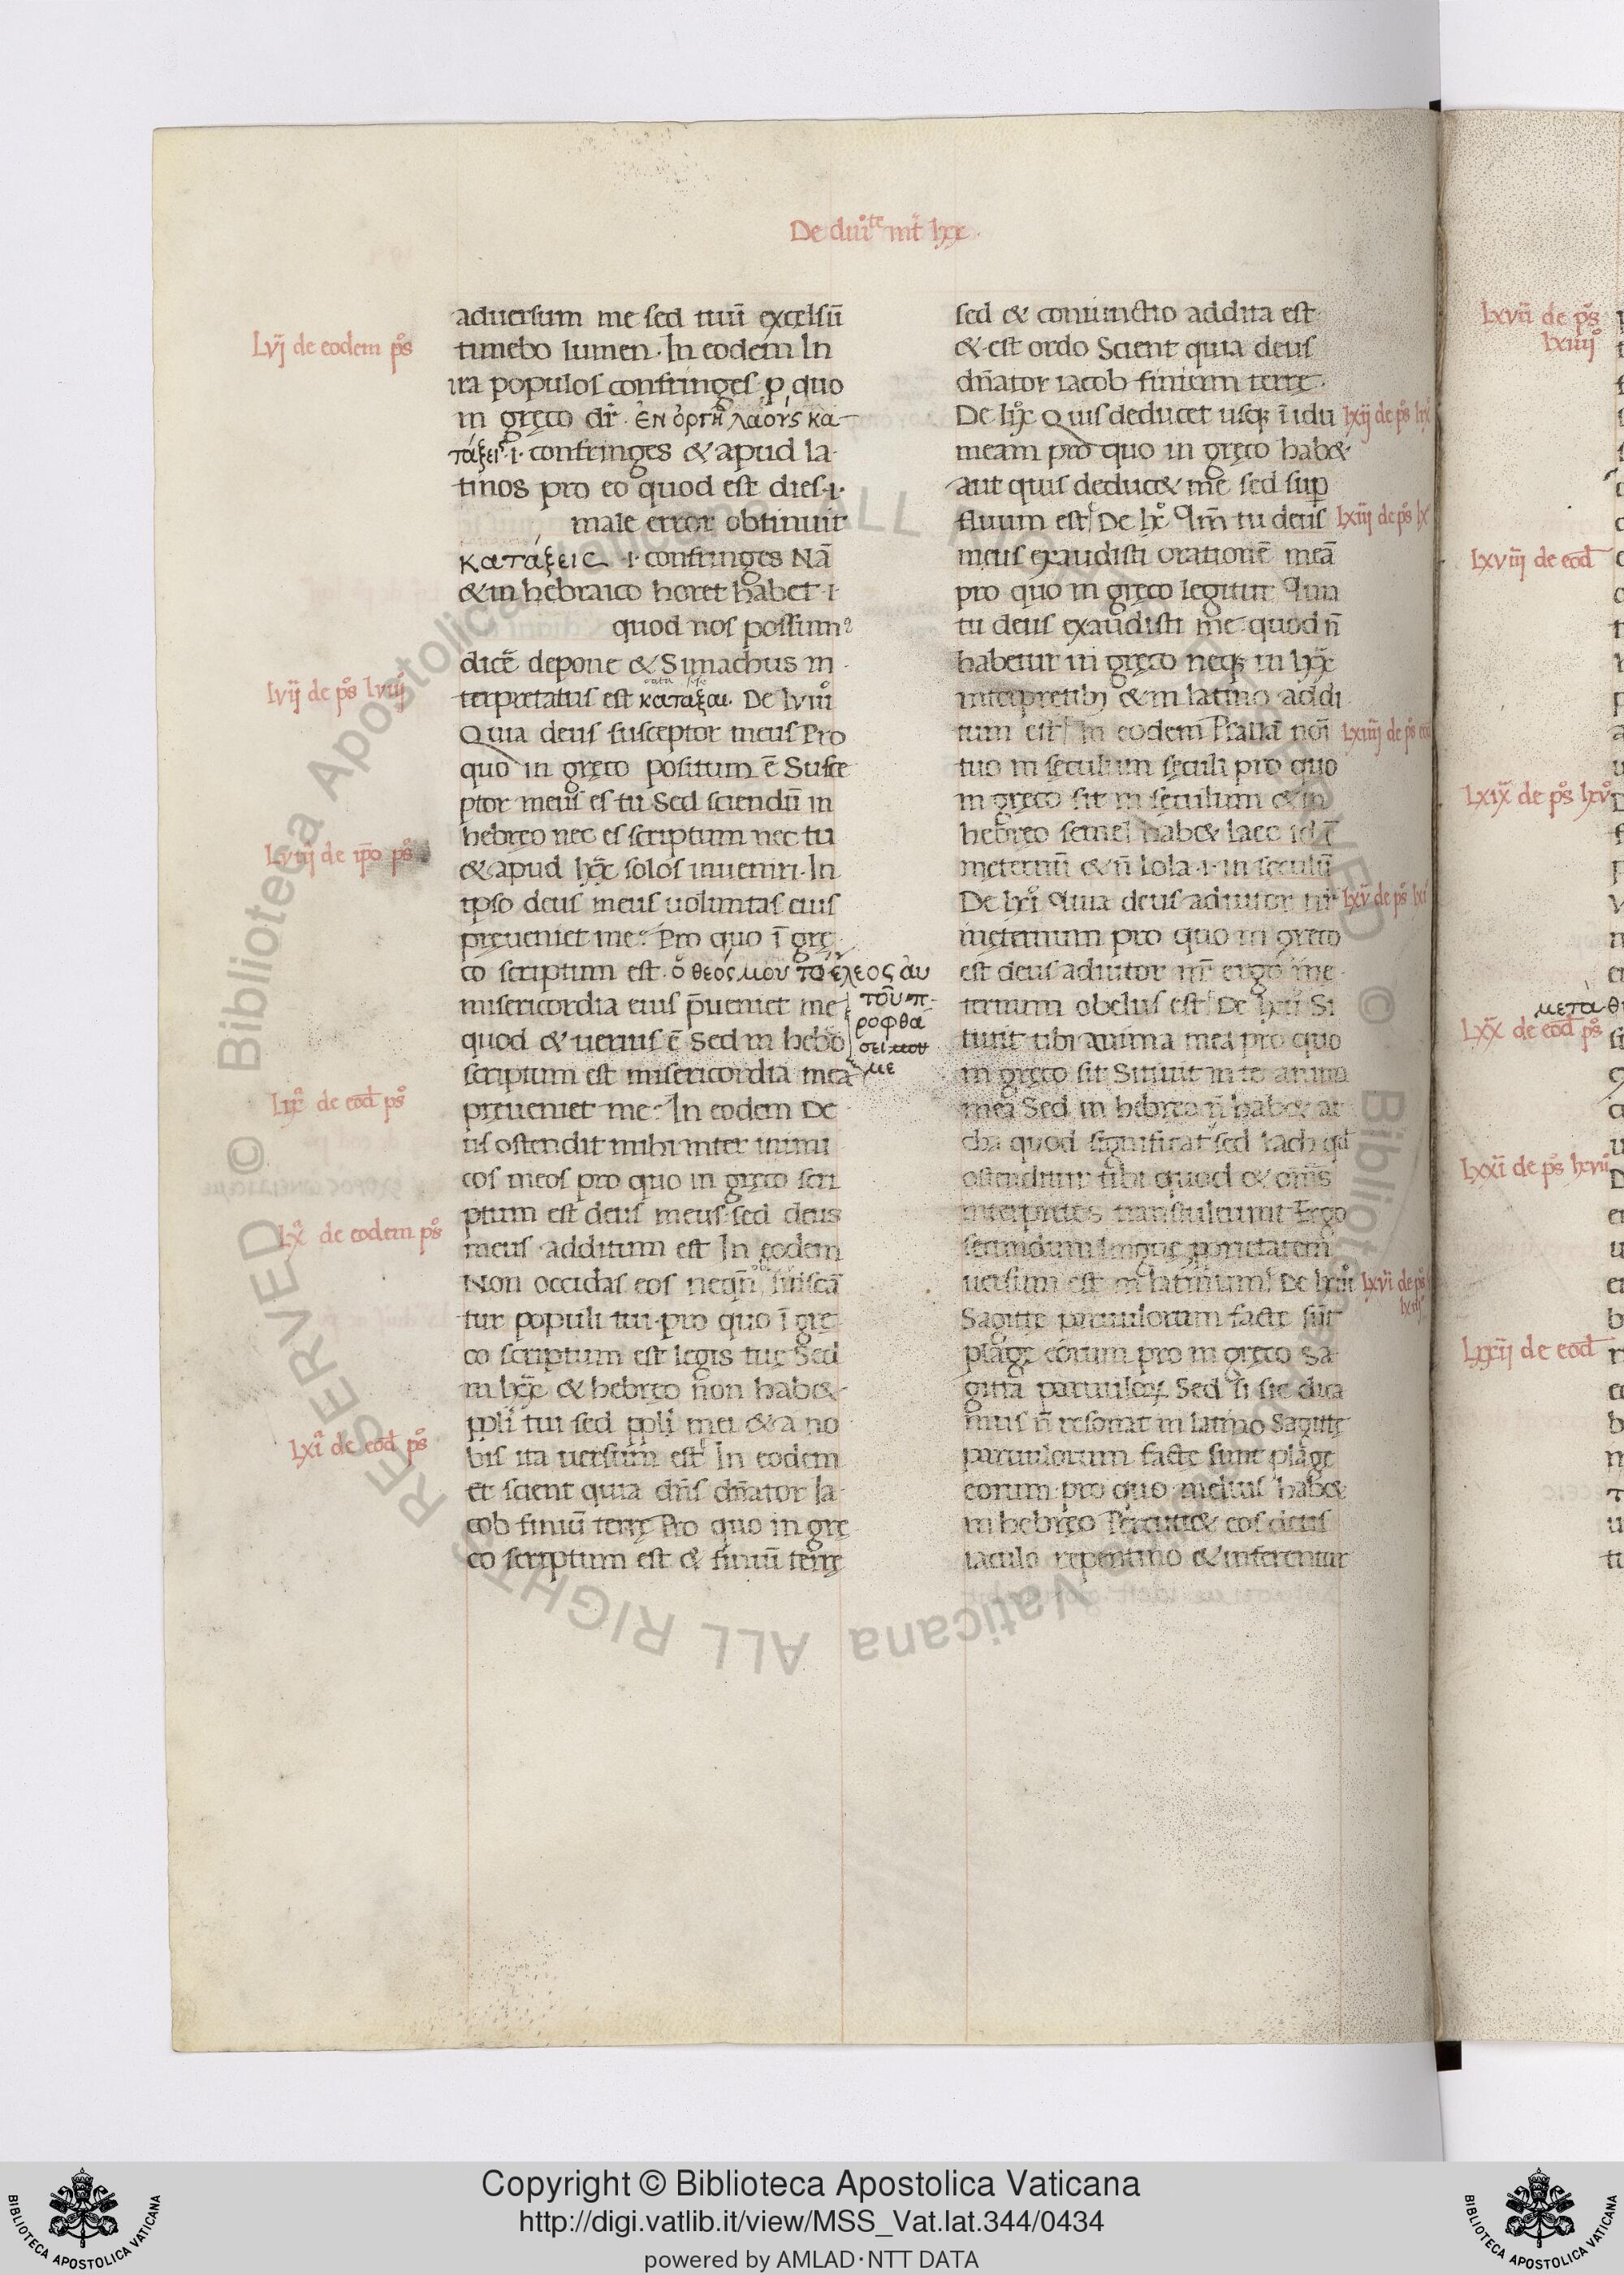 De diu͛i͛te mt͛ lxx.
Lvj de eodem ps̊
lvij de ps̊ lviij̊
Lviij de ip̄o ps̊
Lix̊ de eod̄ ps̊
Lx̊ de eodem ps̊
Lxi̊ de eod̄ ps̊
aduersum me sed tuū excelsū
timebo lumen. In eodem In
ira populos confringes. p, quo
in gręco dr̄. ἐν ὀργῆ λαοὺς κα
τάξεις .i. confringes & apud la
tinos pro eo quod est dies .i.
male error obtinuit
κατάξεις .i. confringes Nā
& in hebraico horet habet .i.
quod nos possum᷒
dicē depone & Simachus in
terpretatus est καταξαι. De lviii̊
Quia deus susceptor meus Pro
quo in gręco positum ē Susce
ptor meus es tu Sed sciendū in
hebręo nec es scriptum nec tu
& apud lxx̊ solos inueniri. In
ipso deus meus uoluntas eius
pręueniet me: Pro quo ī grę
co scriptum est. ὁ θεός μου τὸ ἔλεος ἀυ
τοῦ π
ροφθα
σει μου
με
misericordia eius p̄ueniet me
quod & uerius ē Sed in hebrō
scriptum est misericordia mea
pręueniet me: In eodem De
us ostendit mihi inter inimi
cos meos pro quo in gręco scri
ptum est deus meus. sed deus
meus additum est In eodem
Non occidas eos neqn̄ obliuiscā
tur populi tui. pro quo ī grę
co scriptum est legis tuę Sed
in lxx̊ & hebręo non hab&
ppl̄i tui sed ppl̄i mei & a no
bis ita uersum est In eodem
et scient quia dn̄s dn̄ator Ia
cob finiū terrę Pro quo in grę
co scriptum est & finiū terrę
sed & coniunctio addita est
& est ordo Scient quia deus
dn̄ator iacob finium terrę.
De lix̊ Quis deducet usq; ī idu
meam pro quo in gręco hab&
aut quis deduc& me sed sup̄
fluum est De lx̊ Qm̄ tu deus
meus exaudisti orationē meā
pro quo in gręco legitur Quia
tu deus exaudisti me quod n̄
habetur in gręco neq; in lxx̊
interpretib; & in latino addi
tum est In eodem Psallā nōi
tuo in seculum sęculi pro quo
in gręco sit in sęculum & in
hebręo semel hab& laed id ē
ineternū & n̄ lola .i. in seculū
De lxi̊ Quia deus adiutor nr̄
ineternum pro quo in gręco
est deus adiutor nr̄ ergo ine
ternum obelus est De lxii̊ Si
tiuit tibi anima mea pro quo
in gręco sit Sitiuit in te anima
mea Sed in hebręo n̄ hab& at
tha quod significat sed lach qd̄
ostenditur tibi quod & om̄s
interpretes transtulerunt Ergo
secundum linguę pprietatem
uersum est in latinum De lxiii̊
Sagittę paruulorum factę sūt
plagę eorum pro in gręco Sa
gitta paruuloꝝ Sed si sic dica
mus n̄ resonat in latino Sagittę
paruulorum factę sunt plagę
eorum. pro quo melius hab&
in hebręo Percuti& eos deus
iaculo repentino & inferentur
lxij de ps̊ lix̊
lxiij de ps̊ lx̊
lxiiij de ps̊ eod̄
lxv̊ de ps̊ lxi̊
lxvi de ps̊
lxiij̊
lxvii de ps̊
lxiiij̊
lxviij de eod̄
lxix̊ de ps̊ lxv̊
μετα θ
lxx̊ de eod̄ ps̊
lxxi de ps̊ lxvii̊
lxxij de eod̄
Copyright © Biblioteca Apostolica Vaticana
http://digi.vatlib.it/view/MSS_Vat.lat.344/0434
powered by AMLAD·NTT DATA
BIBLIOTECA APOSTOLICA VATICANA
BIBLIOTECA APOSTOLICA VATICANA
© Biblioteca Apostolica Vaticana ALL RIGHTS RESERVED
© Biblioteca Apostolica Vaticana ALL RIGHTS RESERVED